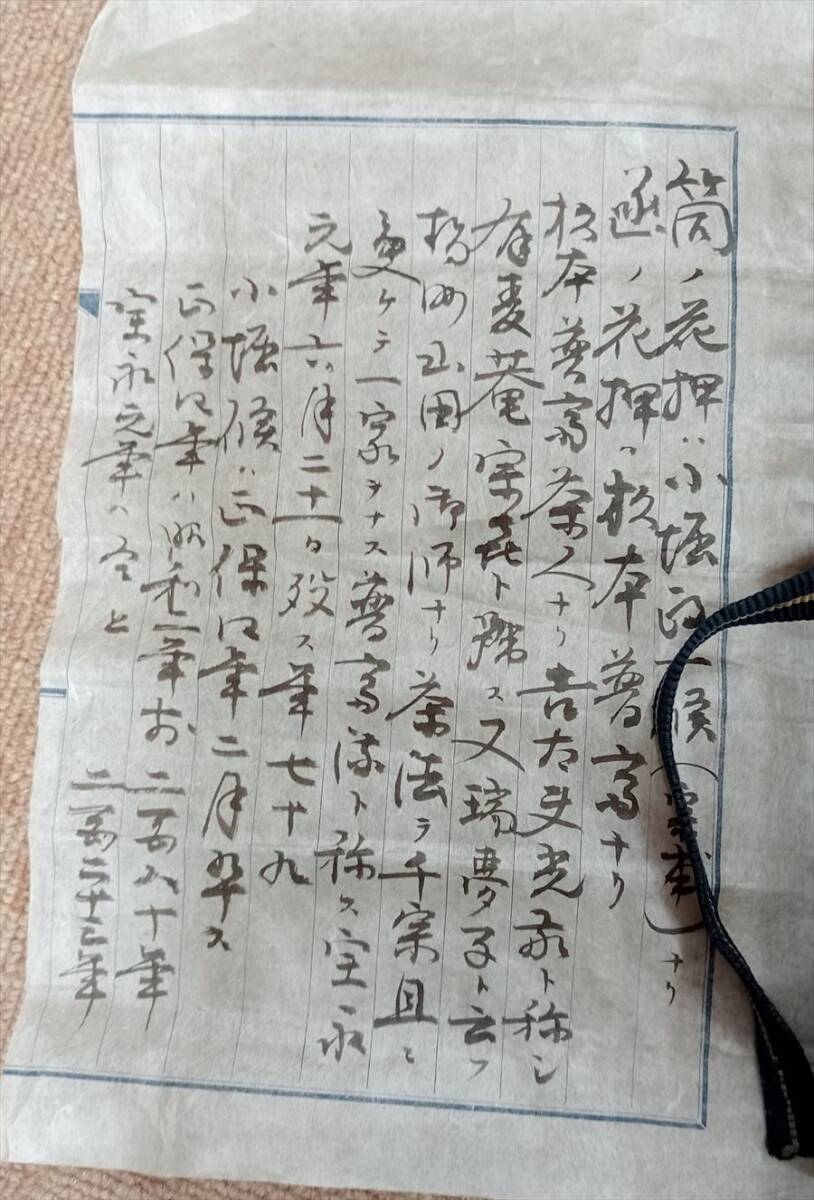 筒ノ花押ハ小堀政一侯(宗甫)ナリ
函ノ花押ハ杉本普斎ナリ
杉本普斎茶人ナリ吉太夫光敬ト称シ
有麦菴宗喜ト號ス又瑞夢子ト云フ
勢州山田ノ御師ナリ茶法ヲ千宗旦ニ
受ケテ一家ヲナス普斎流ト称ス宝永
元年六月二十一日歿ス年七十九
小堀侯ハ正保四年二月卒ス
正保四年ハ昭和二年 二百八十年
宝永元年ハ仝 二百二十三年